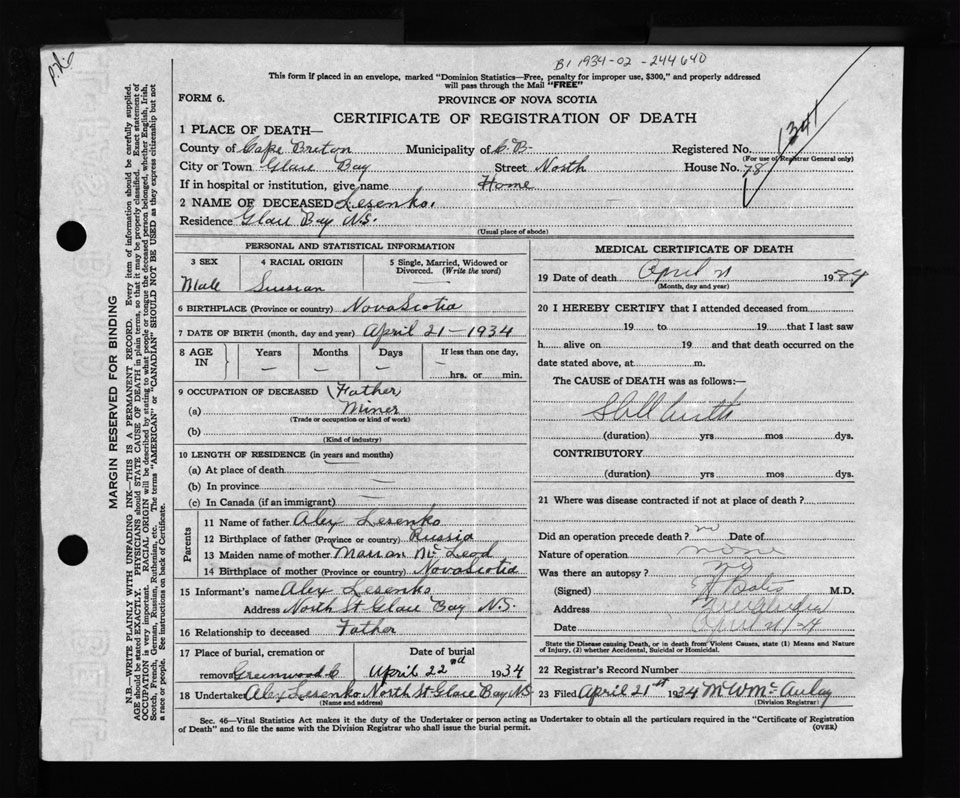 B1 1934-02-244640
This form if placed in an envelope, marked "Dominion Statistics—Free, penalty for improper use, $300," and properly addressed
will pass through the Mail "FREE"
FORM 6.
PROVINCE OF NOVA SCOTIA
CERTIFICATE OF REGISTRATION OF DEATH
1341
1 PLACE OF DEATH—
County of Cape Breton Municipality of C.B. Registered No.
(For use of Registrar General only)
City or Town Glace Bay Street North House No. 78
If in hospital or institution, give name Home
2 NAME OF DECEASED Lesenko.
Residence Glace Bay N.S.
(Usual place of abode)
MARGIN RESERVED FOR BINDING
N.B.—WRITE PLAINLY WITH UNFADING INK—THIS IS A PERMANENT RECORD. Every item of information should be carefully supplied.
AGE should be stated EXACTLY. PHYSICIANS should STATE CAUSE OF DEATH in plain terms, so that it may be properly classified. Exact statement of
OCCUPATION is very important. RACIAL ORIGIN will be described by stating to what people or tongue the deceased person belonged, whether English, Irish,
Scotch, French, German, Russian, Ruthenian, etc. The terms "AMERICAN" or "CANADIAN" SHOULD NOT BE USED as they express citizenship but not
a race or people. See instructions on back of Certificate.
PERSONAL AND STATISTICAL INFORMATION
3 SEX 4 RACIAL ORIGIN 5 Single, Married, Widowed or
Divorced. (Write the word)
Male
6 BIRTHPLACE (Province or country) Nova Scotia
7 DATE OF BIRTH (month, day and year) April 21 - 1934
8 AGE IN Years Months Days If less than one day,
— — — —
hrs. or min.
9 OCCUPATION OF DECEASED (Father)
(a) Miner
(Trade or occupation or kind of work)
(b)
(Kind of industry)
10 LENGTH OF RESIDENCE (in years and months)
(a) At place of death
(b) In province —
(c) In Canada (if an immigrant) —
Parents
11 Name of father Alex Lesenko
12 Birthplace of father (Province or country) Russia
13 Maiden name of mother Marian McLeod
14 Birthplace of mother (Province or country) Nova Scotia
15 Informant's name Alex Lesenko
Address North St Glace Bay N.S.
16 Relationship to deceased Father
17 Place of burial, cremation or Date of burial
removal Greenwood C April 22nd 1934
18 Undertaker Alex Lesenko North St Glace Bay N.S
(Name and address)
MEDICAL CERTIFICATE OF DEATH
19 Date of death April 21 1934
(Month, day and year)
20 I HEREBY CERTIFY that I attended deceased from
19 to 19 that I last saw
h alive on 19 and that death occurred on the
date stated above, at m.
The CAUSE of DEATH was as follows:—
Still birth
(duration) yrs mos dys.
CONTRIBUTORY
(duration) yrs mos dys.
21 Where was disease contracted if not at place of death?
Did an operation precede death? no Date of
Nature of operation none
Was there an autopsy? no
(Signed) M.D.
Address
Date April 21/34
State the Disease causing Death, or in death from Violent Causes, state (1) Means and Nature
of Injury, (2) whether Accidental, Suicidal or Homicidal.
22 Registrar's Record Number
23 Filed April 21st 1934 M W McAulay
(Division Registrar)
Sec. 46—Vital Statistics Act makes it the duty of the Undertaker or person acting as Undertaker to obtain all the particulars required in the "Certificate of Registration
of Death" and to file the same with the Division Registrar who shall issue the burial permit.
(OVER)